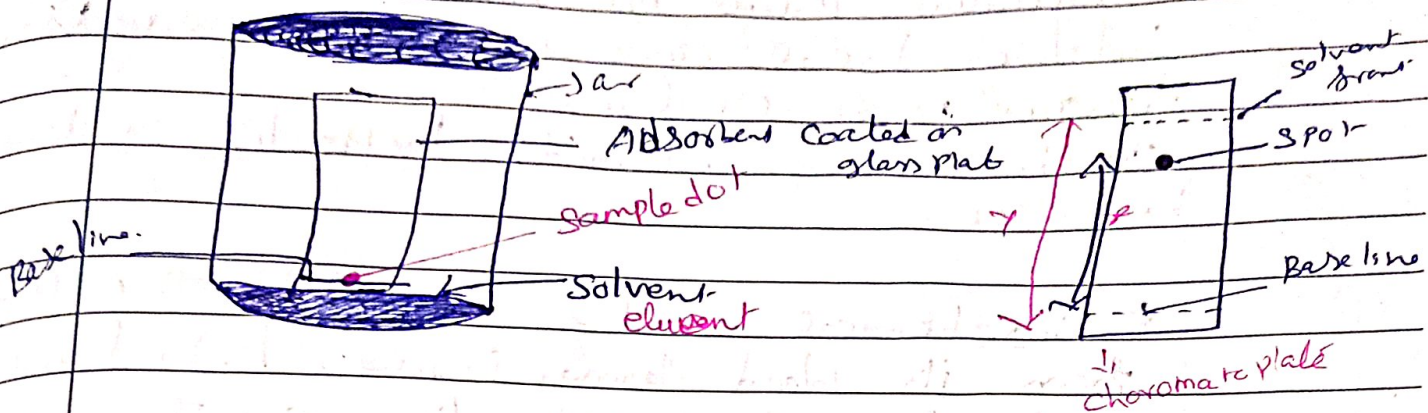 Jar
Adsorbent Coated on
glass plat
Sample dot
Base line.
Solvent
eluent
Solvent
front
Spot
Y
x
Base line
choromate plate